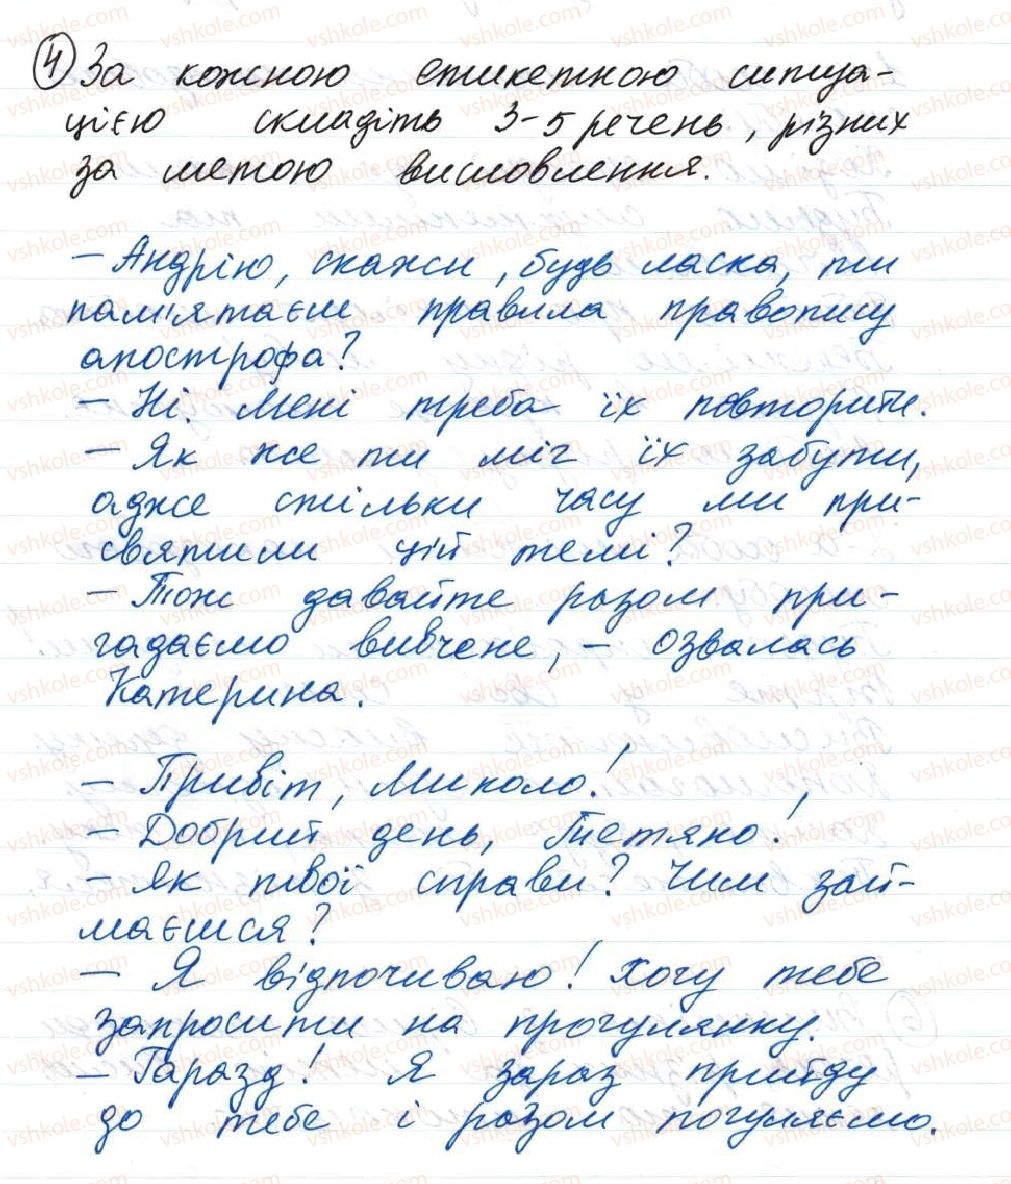 ④ За кожною етикетною ситуа-
цією складіть 3-5 речень, різних
за метою висловлення.
- Андрію, скажи, будь ласка, ти
пам'ятаєш правила правопису
апострофа?
- Ні. Мені треба їх повторити.
- Як же ти міг їх забути,
адже стільки часу ми при-
святили цій темі?
- Тож давайте разом при-
гадаємо вивчене, - озвалась
Катерина.
- Привіт, Миколо!
- Добрий день, Тетяно!
- Як твої справи? Чим зай-
маєшся?
- Я відпочиваю! Хочу тебе
запросити на прогулянку.
- Гаразд! Я зараз прийду
до тебе і разом погуляємо.